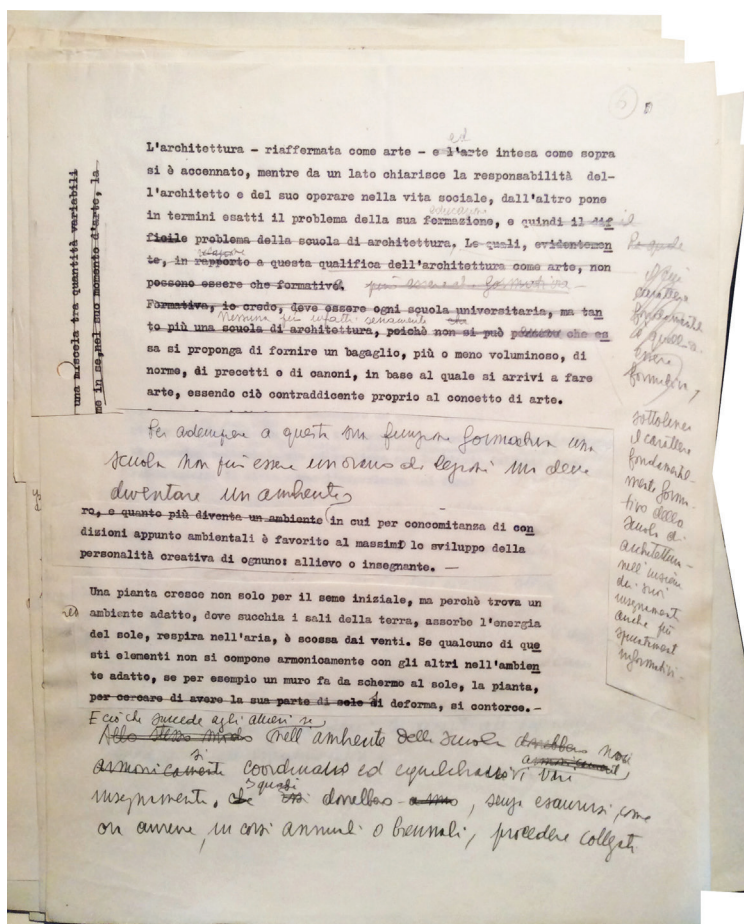 6
L'architettura - riaffermata come arte - e l'arte intesa come sopra
ed
si è accennato, mentre da un lato chiarisce la responsabilità del-
l'architetto e del suo operare nella vita sociale, dall'altro pone
in termini esatti il problema della sua formazione, e quindi il dif
educazione
il
ficile problema della scuola di architettura. Le quali, evidentemen
la quale
te, in rapporto a questa qualifica dell'architettura come arte, non
possono essere che formative.
può essere formativa
Formativa, io credo, deve essere ogni scuola universitaria, ma tan
Nessuno può infatti seriamente
to più una scuola di architettura, poichè non si può che es
sa si proponga di fornire un bagaglio, più o meno voluminoso, di
norme, di precetti e di canoni, in base al quale si arrivi a fare
arte, essendo ciò contraddicente proprio al concetto di arte.
una miscela tra quantità variabili
me in se, nel suo momento d'arte, la
carattere
fondamentale
essere
formativa,
sottolinea
il carattere
fondamental-
mente forma-
tivo della
scuola di
architettura -
dei suoi
insegnamenti
anche più
informativi -
Per adempiere a questa sua funzione formativa una
scuola non può essere un orario di lezioni ma deve
diventare un ambiente
ro, e quanto più diventa un ambiente in cui per concomitanza di con
dizioni appunto ambientali è favorito al massimo lo sviluppo della
personalità creativa di ognuno: allievo o insegnante. —
Una pianta cresce non solo per il seme iniziale, ma perchè trova un
ed
ambiente adatto, dove succhia i sali della terra, assorbe l'energia
del sole, respira nell'aria, è scossa dai venti. Se qualcuno di que
sti elementi non si compone armonicamente con gli altri nell'ambien
te adatto, se per esempio un muro fa da schermo al sole, la pianta,
per cercare di avere la sua parte di sole si deforma, si contorce.-
E ciò che succede agli allievi se,
Allo stesso modo nell'ambiente della scuola dovrebbero non
armonicamente si coordinano ed equilibrano i vari
armonicamente
insegnamenti, che essi dovrebbero, senza esaurirsi, come
i quali
ora avviene, in corsi annuali o biennali, procedere collegati